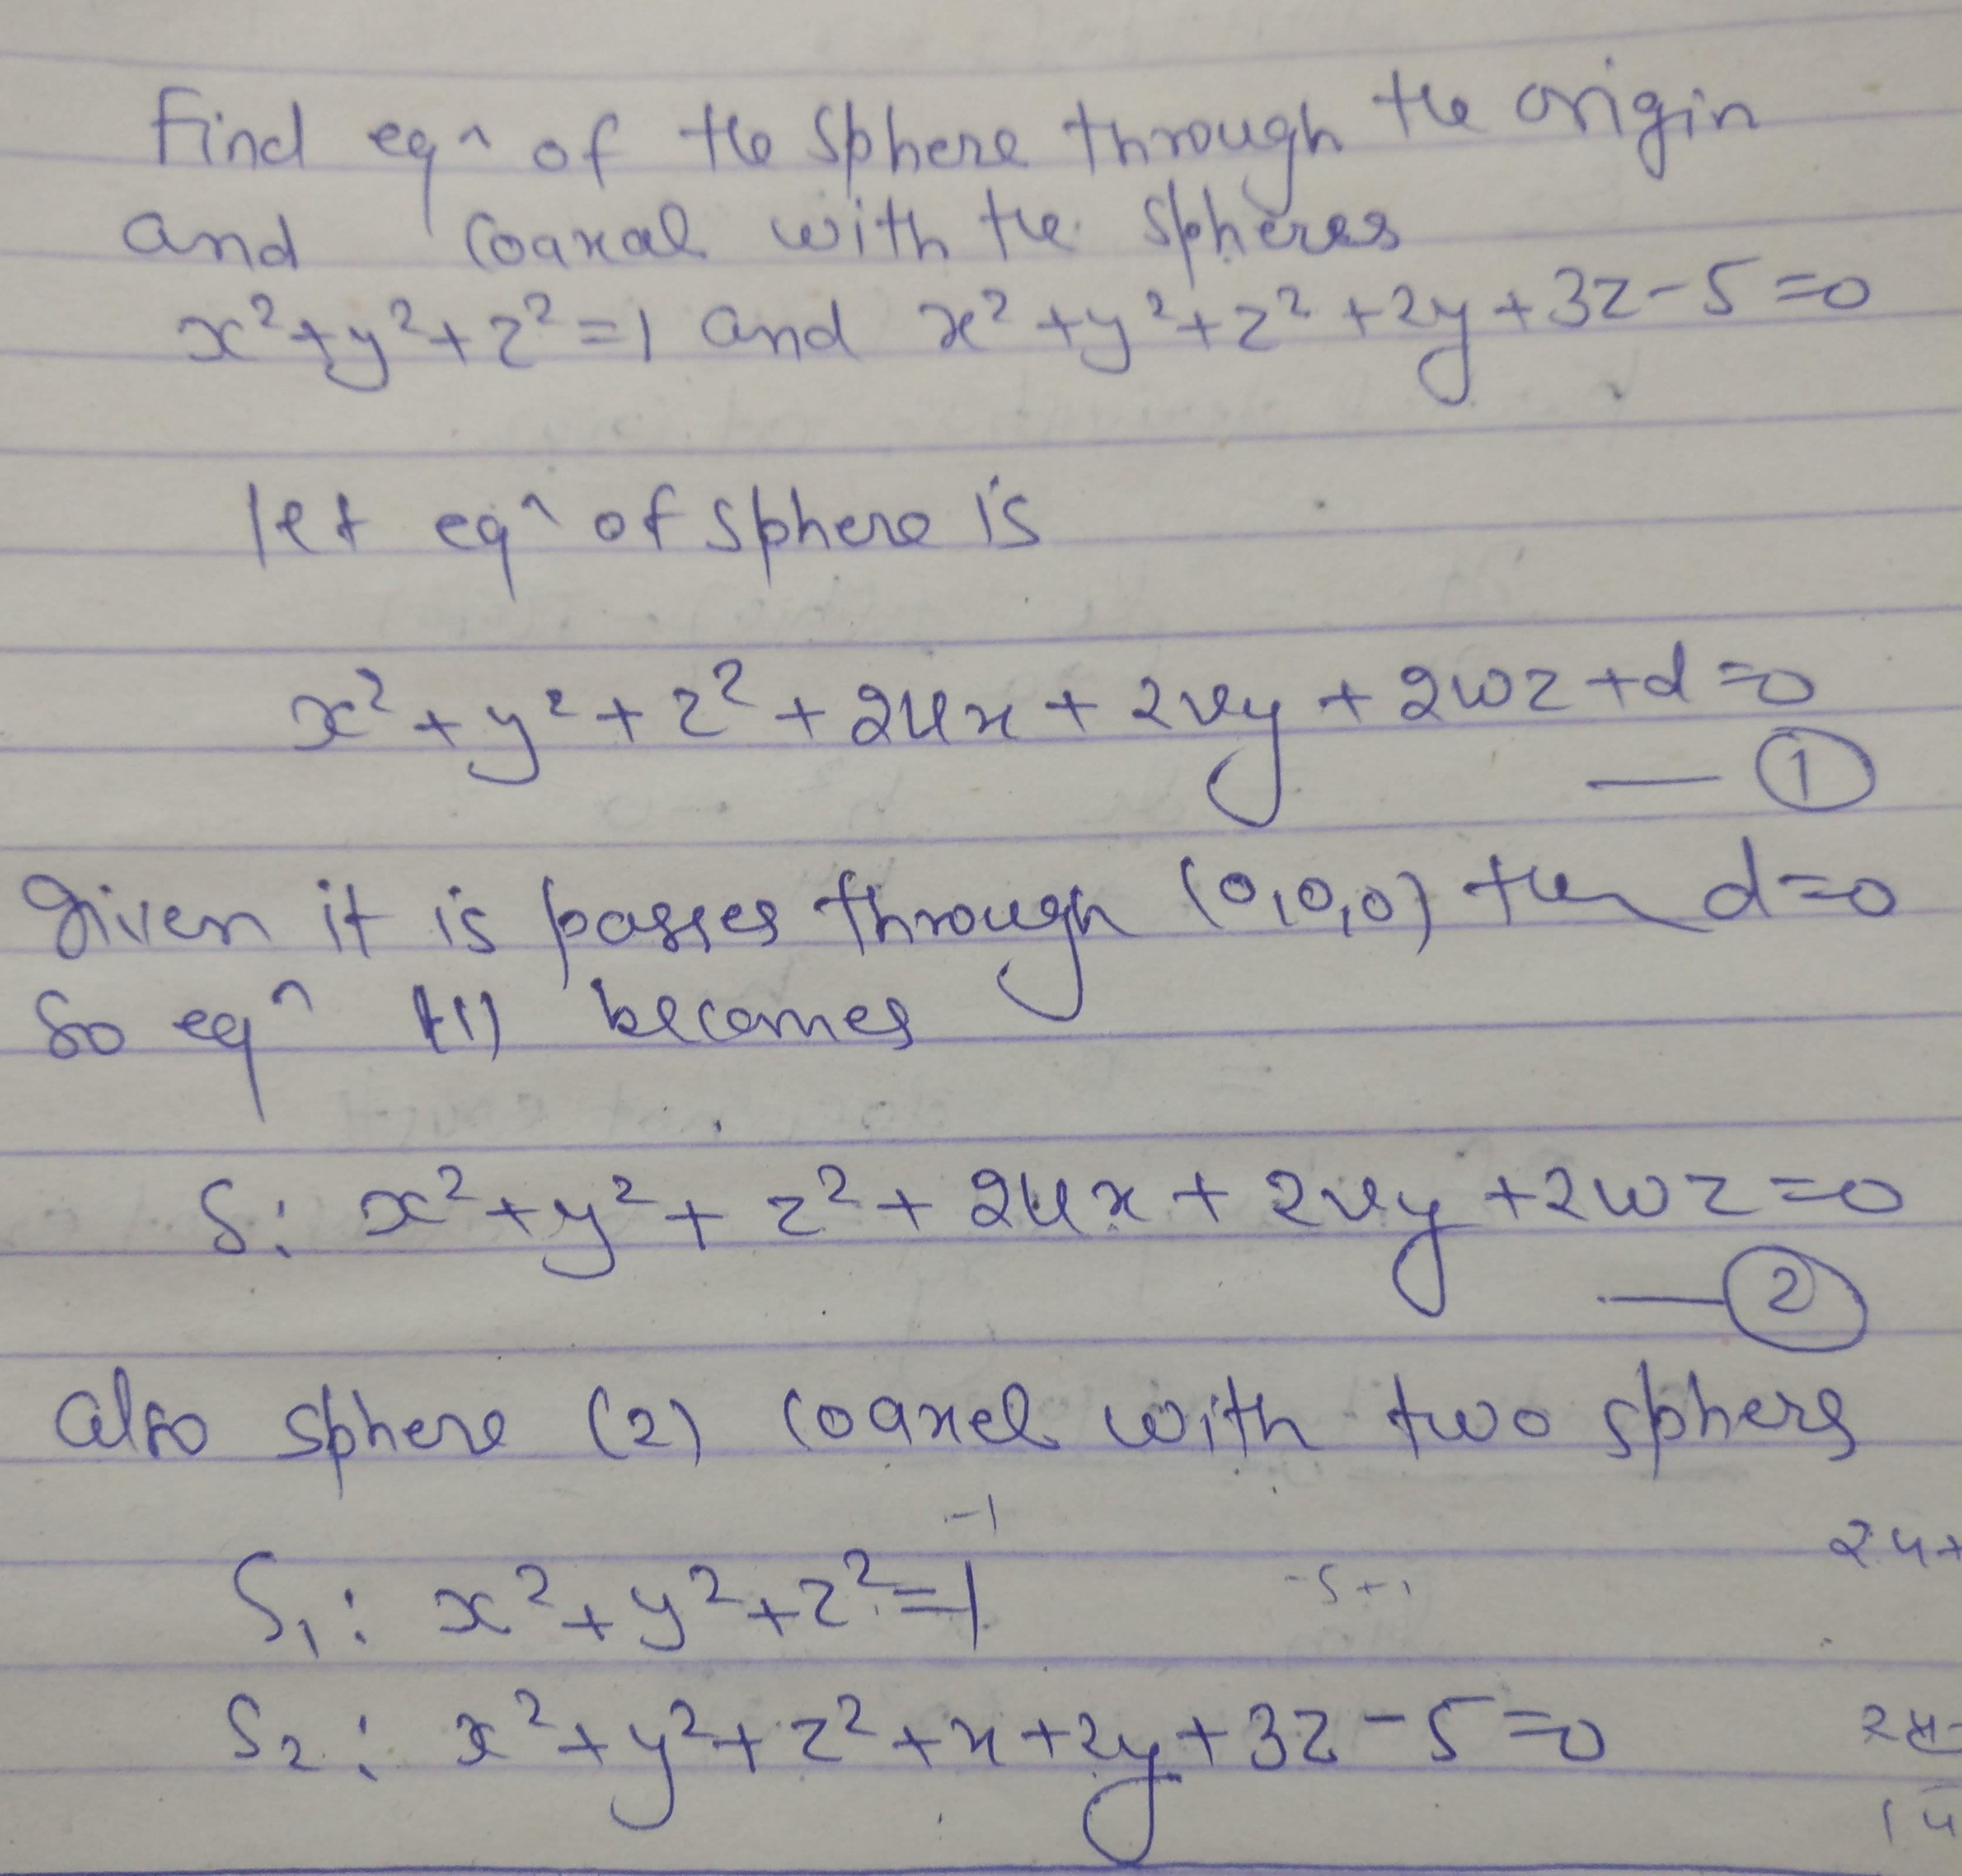 Find eqn of the sphere through the origin
and coaxal with the spheres
x²+y²+z²=1 and x²+y²+z²+2y+3z-5=0
let eqn of sphere is
x²+y²+z²+2ux+2vy+2wz+d=0
— ①
Given it is passes through (0,0,0) then d=0
So eqn (1) becomes
S: x²+y²+z²+2ux+2vy+2wz=0
— ②
also sphere (2) coaxel with two sphers
-1
S₁: x²+y²+z²=1
-5+1
S₂: x²+y²+z²+x+2y+3z-5=0